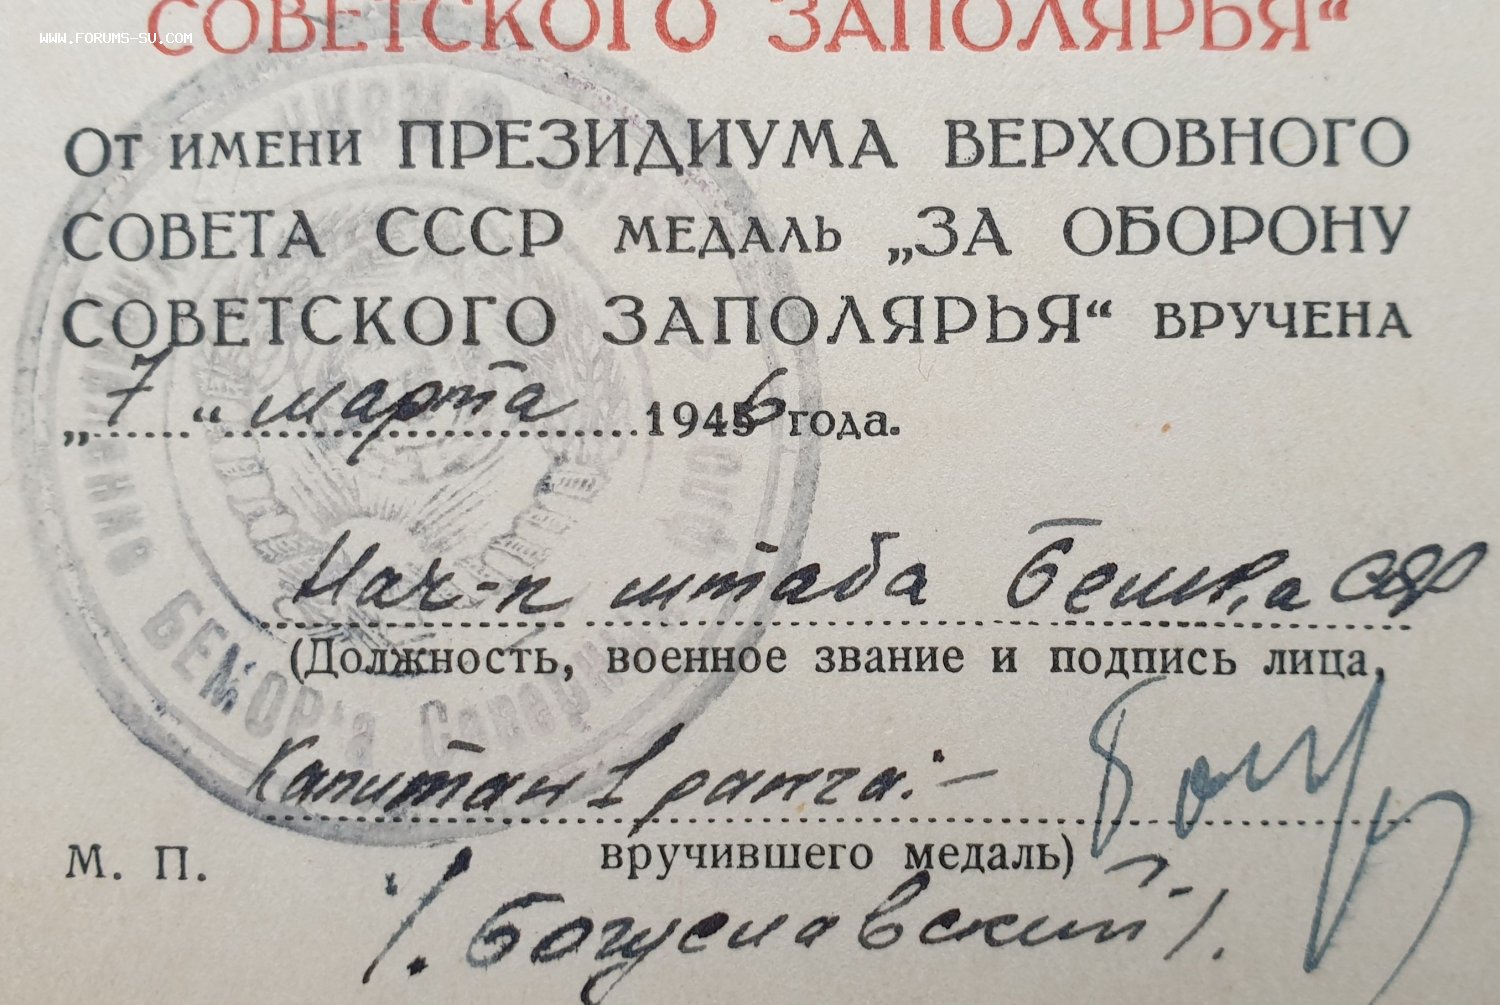 www.forums-su.com
СОВЕТСКОГО ЗАПОЛЯРЬЯ“
От имени ПРЕЗИДИУМА ВЕРХОВНОГО
СОВЕТА СССР медаль „ЗА ОБОРОНУ
СОВЕТСКОГО ЗАПОЛЯРЬЯ“ вручена
„ 7 “ марта 1946 года.
Нач-к штаба
(Должность, военное звание и подпись лица,
Капитан 1 ранга:-
вручившего медаль)
М. П.
/. Богуславский /.
БЕМОР'а Северн